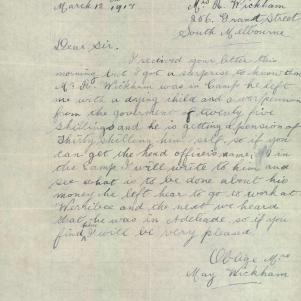 March 12th 1917
Mrs H. Wickham
266 Grand Street
South Melbourne
Dear Sir.
I recived your letter this
morning but I got a surprise to know that
Mr H. Wickham was in Camp he left
me with a dying child and a war pension
from the goverment of twenty five
shillings and he is getting a pension of
Thirty shilling him self, so if you
can get the head officers name, in
the Camp I will write to him and
see what is to be done about his
money he left hear to go to work at
Werribee and the next we heard
that he was in Adelaide, so if you
find him I will be very pleased.
Oblige Mrs
May Wickham